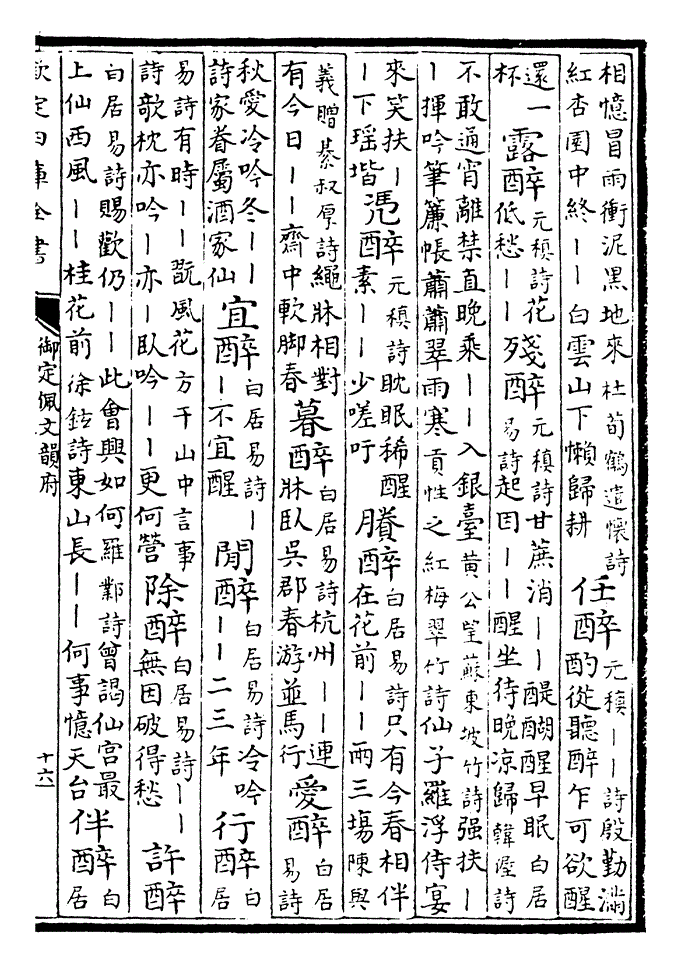 相憶冒雨衝泥黒地來 杜荀鶴遣懷詩
紅杏園中終丨丨白雲山下懶歸耕
任醉
元稹丨丨詩殷勤滿
酌從聽醉乍可欲醒
還一
杯
露醉
元稹詩花
低愁丨丨
殘醉
元稹詩甘蔗消丨丨醍醐醒早眠 白居
易詩起因丨丨醒坐待晚凉歸 韓渥詩
不敢通宵離禁直晚乘丨丨入銀臺 黄公望蘇東坡竹詩强扶丨
丨揮吟筆簾帳蕭蕭翠雨寒 貢性之紅梅翠竹詩仙子羅浮侍宴
來笑扶丨
丨下瑶堦
凴醉
元稹詩耽眠稀醒
素丨丨少嗟吁
賸醉
白居易詩只有今春相伴
在花前丨丨兩三塲 陳與
義贈綦叔原詩繩牀相對
有今日丨丨齋中軟脚春
暮醉
白居易詩杭州丨丨連
牀卧吳郡春游並馬行
愛醉
白居
易詩
秋愛冷吟冬丨丨
詩家眷屬酒家仙
宜醉
白居易詩丨
丨不宜醒
閒醉
白居易詩冷吟
丨丨二三年
行醉
白
居
易詩有時丨丨翫風花 方干山中言事
詩欹枕亦吟丨亦丨卧吟丨丨更何營
除醉
白居易詩丨丨
無因破得愁
許醉
白居易詩賜歡仍丨丨此會興如何 羅鄴詩曾謁仙宫最
上仙西風丨丨桂花前 徐鉉詩東山長丨丨何事憶天台
伴醉
白
居
欽定四庫全書
御定佩文韻府
十六